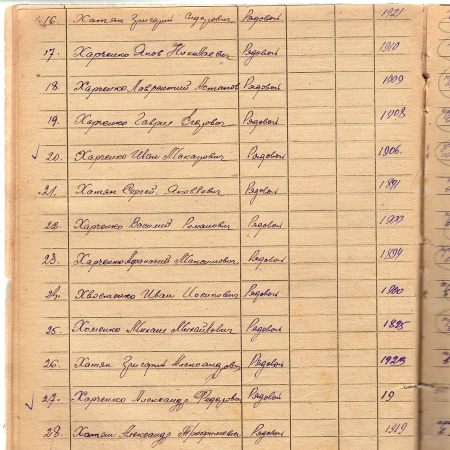 16. Хатян Григорий Сидорович Рядовой 1921
17. Харченко Яков Николаевич Рядовой 1910
18. Харченко Лаврентий Остапов Рядовой 1909
19. Харченко Гаврил Егорович Рядовой 1908
20. Харченко Иван Макарович Рядовой 1906.
21. Хатян Сергей Яковлевич Рядовой 1891
22. Харченко Василий Романович Рядовой 1900
23. Харченко Афанасий Максимович Рядовой 1894
24. Хвостенко Иван Иосипович Рядовой 1900
25. Хоменко Михаил Михайлович Рядовой 1895
26. Хатян Григорий Александрович Рядовой 1923
27. Харченко Александр Федорович Рядовой 19
28. Хатян Александр Трофимович Рядовой 1919